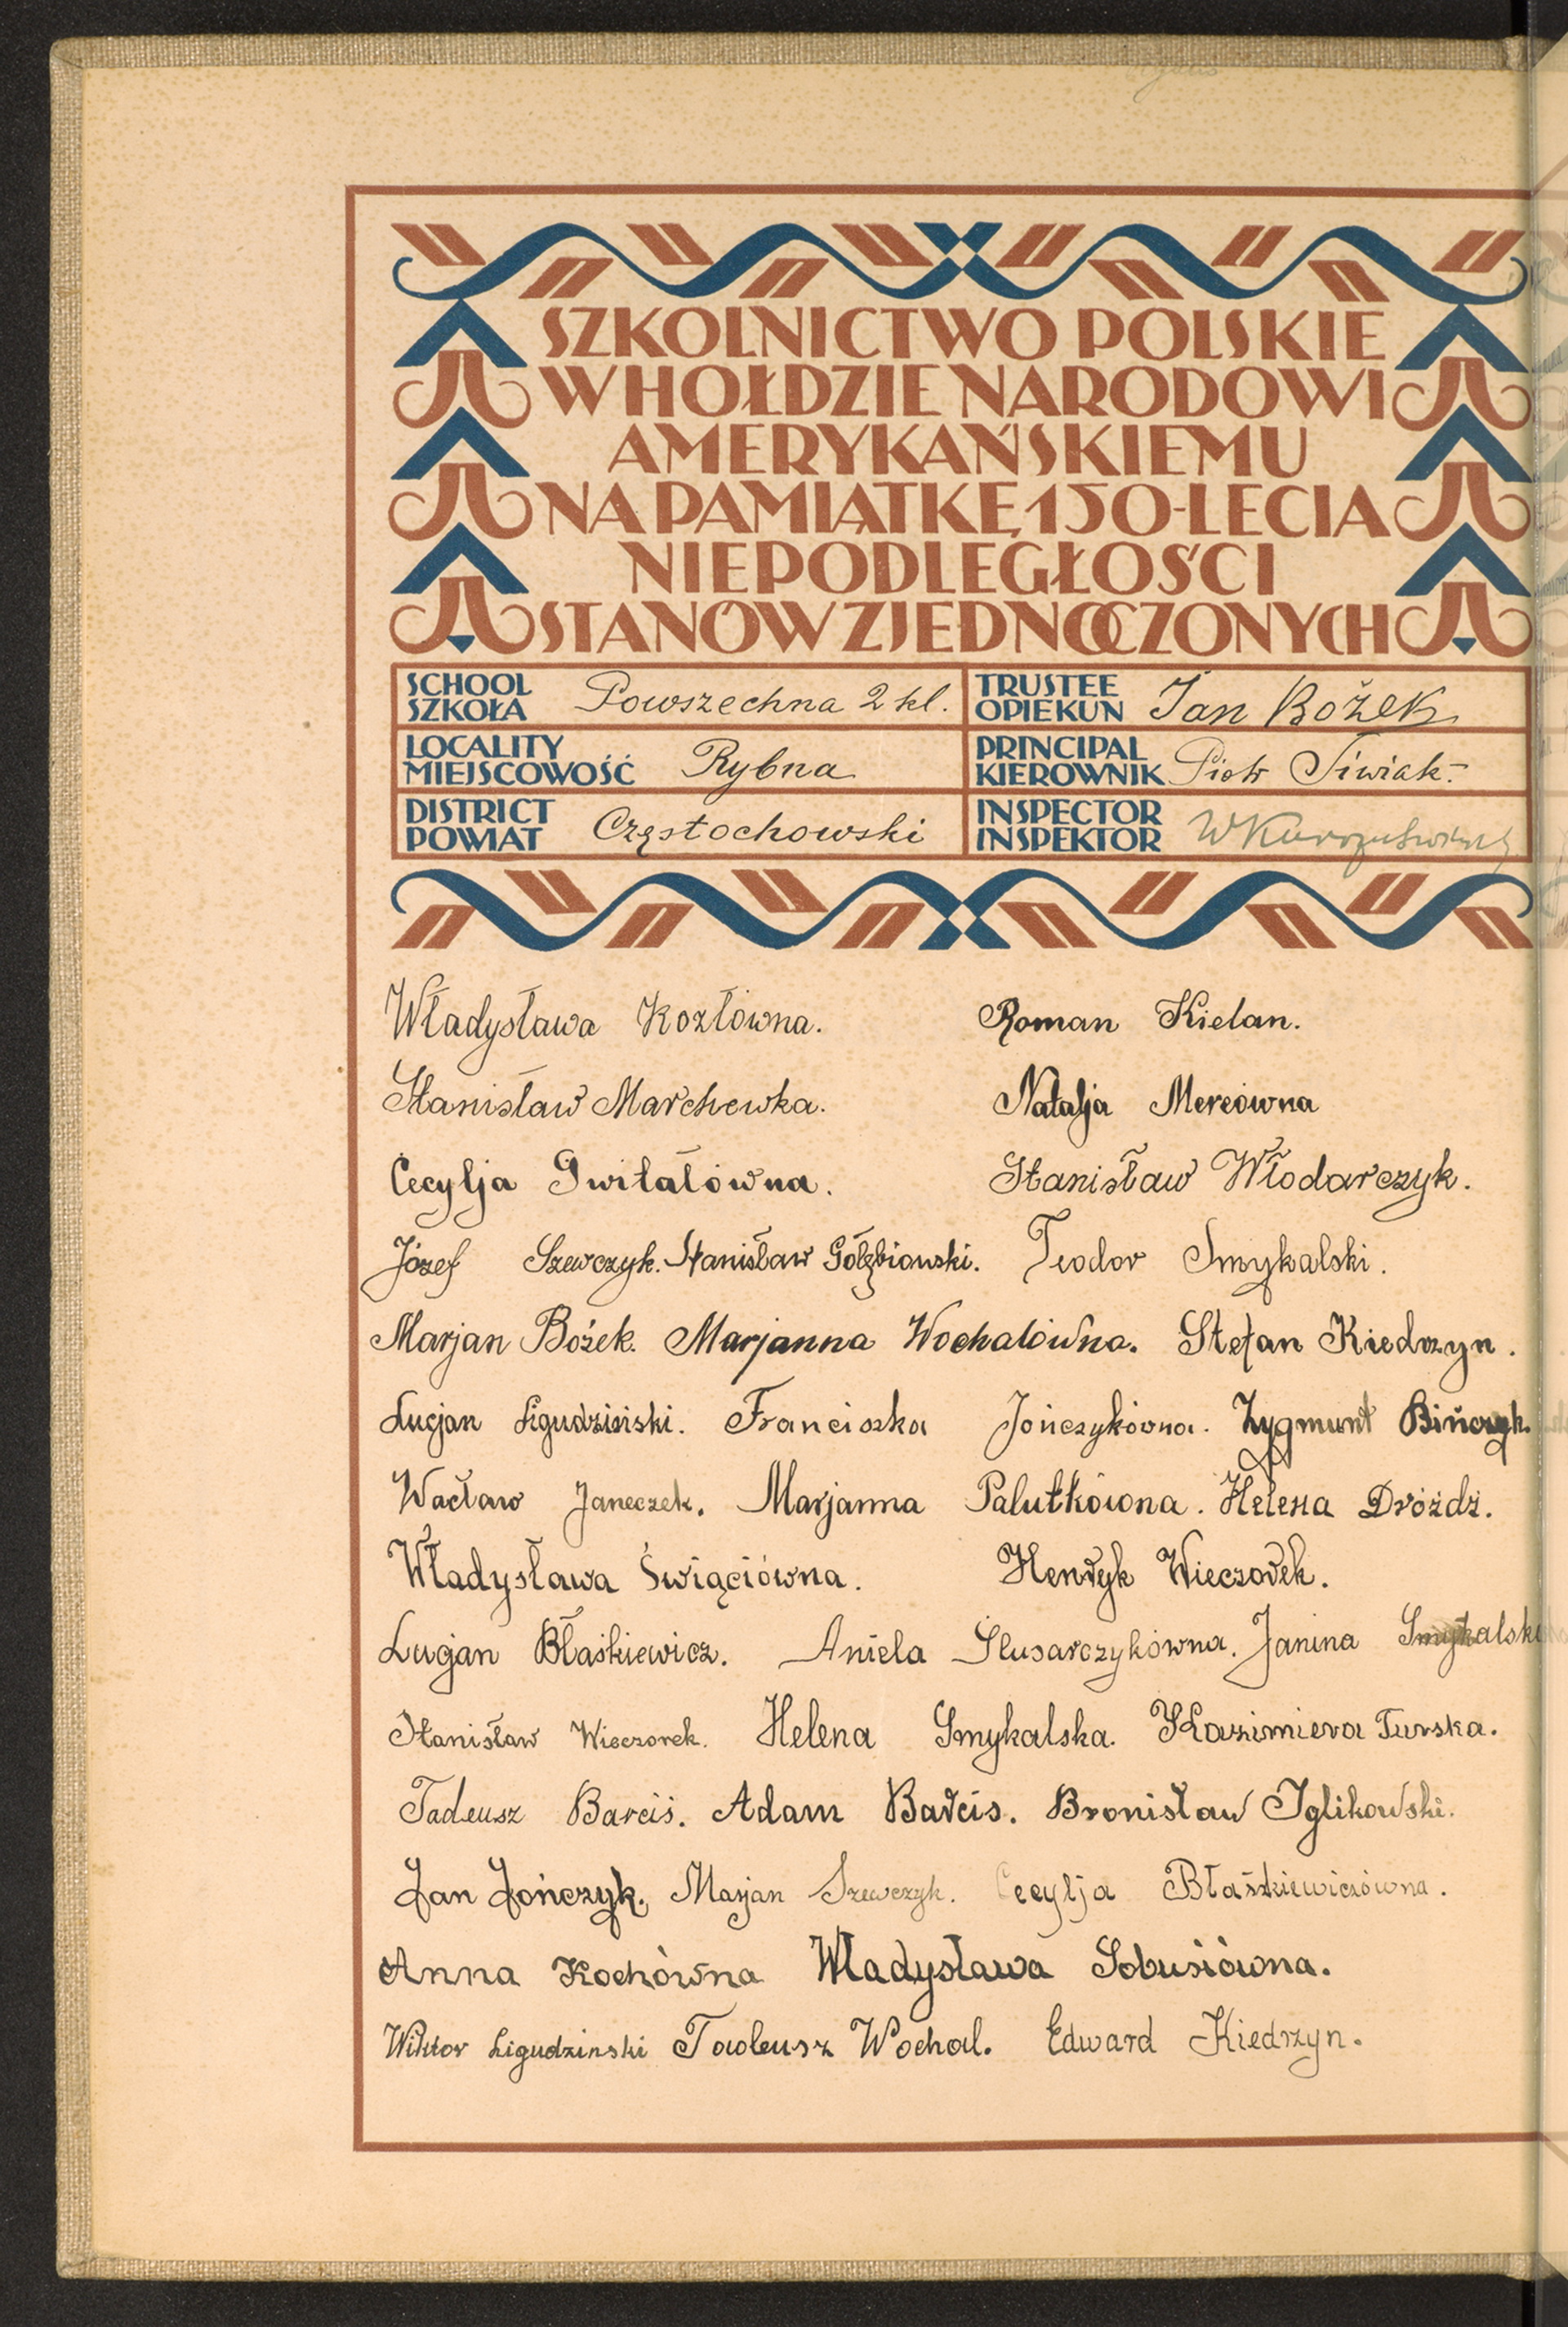 SZKOLNICTWO POLSKIE
W HOŁDZIE NARODOWI
AMERYKAŃSKIEMU
NA PAMIĄTKĘ 150-LECIA
NIEPODLEGŁOŚCI
STANÓW ZJEDNOCZONYCH
SCHOOL
SZKOŁA Powszechna 2 kl.
TRUSTEE
OPIEKUN Jan Bożek
LOCALITY
MIEJSCOWOŚĆ Rybna
PRINCIPAL
KIEROWNIK Piotr Siwiak
DISTRICT
POWIAT Częstochowski
INSPECTOR
INSPEKTOR
Władysława Kozłówna. Roman Kielan.
Stanisław Marchewka. Natalja Mereówna
Cecylja Gwitałówna. Stanisław Włodarczyk.
Józef Szewczyk. Stanisław Gołębiowski. Teodor Smykalski.
Marjan Bożek. Marjanna Wochalówna. Stefan Kiedrzyn.
Lucjan Ligudziński. Franciszka Jończykówna. Zygmunt Bińczyk.
Wacław Janeczek. Marjanna Palutkówna. Helena Dróżdż.
Władysława Święciówna. Henryk Wieczorek.
Lucjan Błaśkiewicz. Aniela Ślusarczykówna. Janina
Stanisław Wieczorek. Helena Smykalska. Kazimiera Turska.
Tadeusz Barciś. Adam Barcis. Bronisław Iglikowski.
Jan Jończyk. Marjan Szewczyk. Cecylja Błaśkiewiczówna.
Anna Kochówna Władysława Sobusiówna.
Wiktor Ligudzinski Tadeusz Wochal. Edward Kiedrzyn.